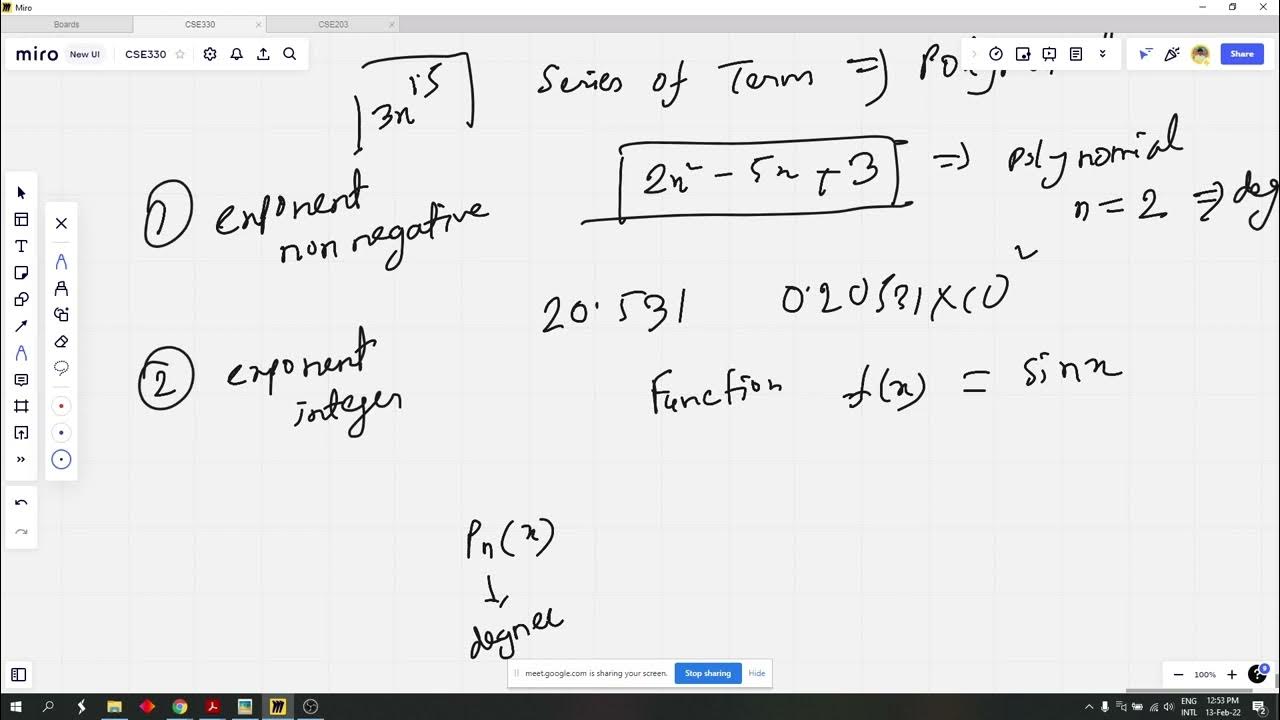 Miro
Boards
CSE330
CSE203
miro
New UI
CSE330
Share
3x^1.5
Series of Term ⇒
2x² - 5x + 3 ⇒ polynomial
n = 2 ⇒ deg
① exponent
non negative
20.531
0.20531×10²
② exponent
integer
Function f(x) = sinx
Pn(x)
↓
degree
meet.google.com is sharing your screen.
Stop sharing
Hide
100%
ENG
INTL
12:53 PM
13-Feb-22